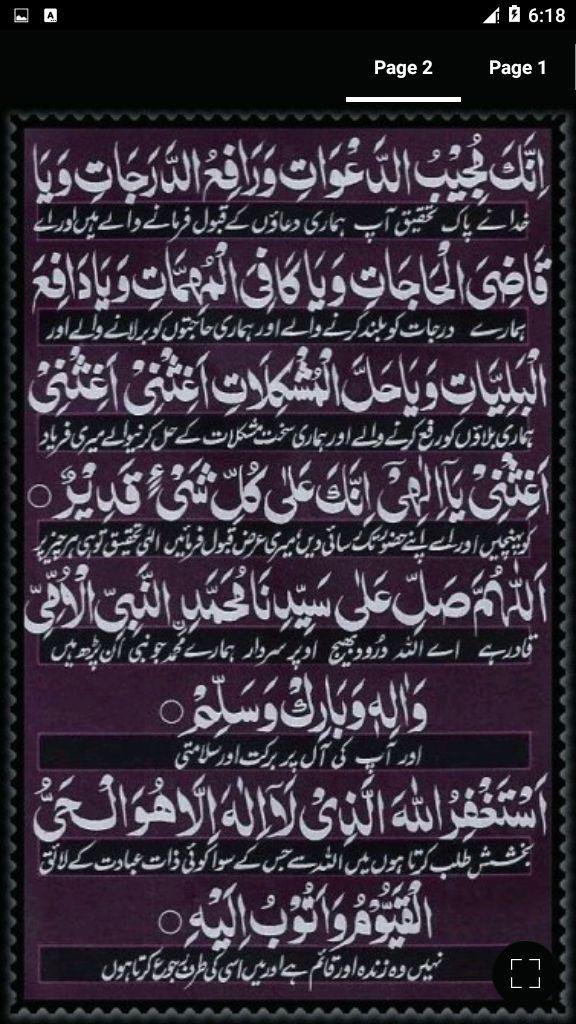 6:18
Page 2 Page 1
اِنَّكَ مُجِيْبُ الدَّعْوَاتِ وَرَافِعُ الدَّرَجَاتِ وَيَا
خدائے پاک تحقیق آپ ہماری دعاؤں کے قبول فرمانے والے ہیں اور اے
قَاضِیَ الْحَاجَاتِ وَيَا كَافِیَ الْمُهِمَّاتِ وَيَا دَافِعَ
ہمارے درجات کو بلند کرنے والے اور ہماری حاجتوں کو بر لانے والے اور
الْبَلِيَّاتِ وَيَا حَلَّ الْمُشْكِلَاتِ اَغِثْنِیْ اَغِثْنِیْ
ہماری بلاؤں کو رفع کرنے والے اور ہماری سخت مشکلات کے حل کرنیوالے میری فریاد
اَغِثْنِیْ يَآ اِلٰهِیْ اِنَّكَ عَلٰی كُلِّ شَیْءٍ قَدِيْرٌ ○
کو پہنچیں اور اسے اپنے حضور تک رسائی دیں میری عرض قبول فرمائیں الٰہی تحقیق تو ہی ہر چیز پر
اَللّٰهُمَّ صَلِّ عَلٰی سَيِّدِنَا مُحَمَّدِنِ النَّبِیِّ الْاُمِّیِّ
قادر ہے اے اللہ درود بھیج اوپر سردار ہمارے محمد جو نبی ان پڑھ ہیں
وَاٰلِهٖ وَبَارِكْ وَسَلِّمْ ○
اور آپ کی آل پر برکت اور سلامتی
اَسْتَغْفِرُ اللّٰهَ الَّذِیْ لَآ اِلٰهَ اِلَّا هُوَ الْحَیُّ
بخشش طلب کرتا ہوں میں اللہ سے جس کے سوا کوئی ذات عبادت کے لائق
الْقَيُّوْمُ وَاَتُوْبُ اِلَيْهِ ○
نہیں وہ زندہ اور قائم ہے اور میں اسی کی طرف رجوع کرتا ہوں